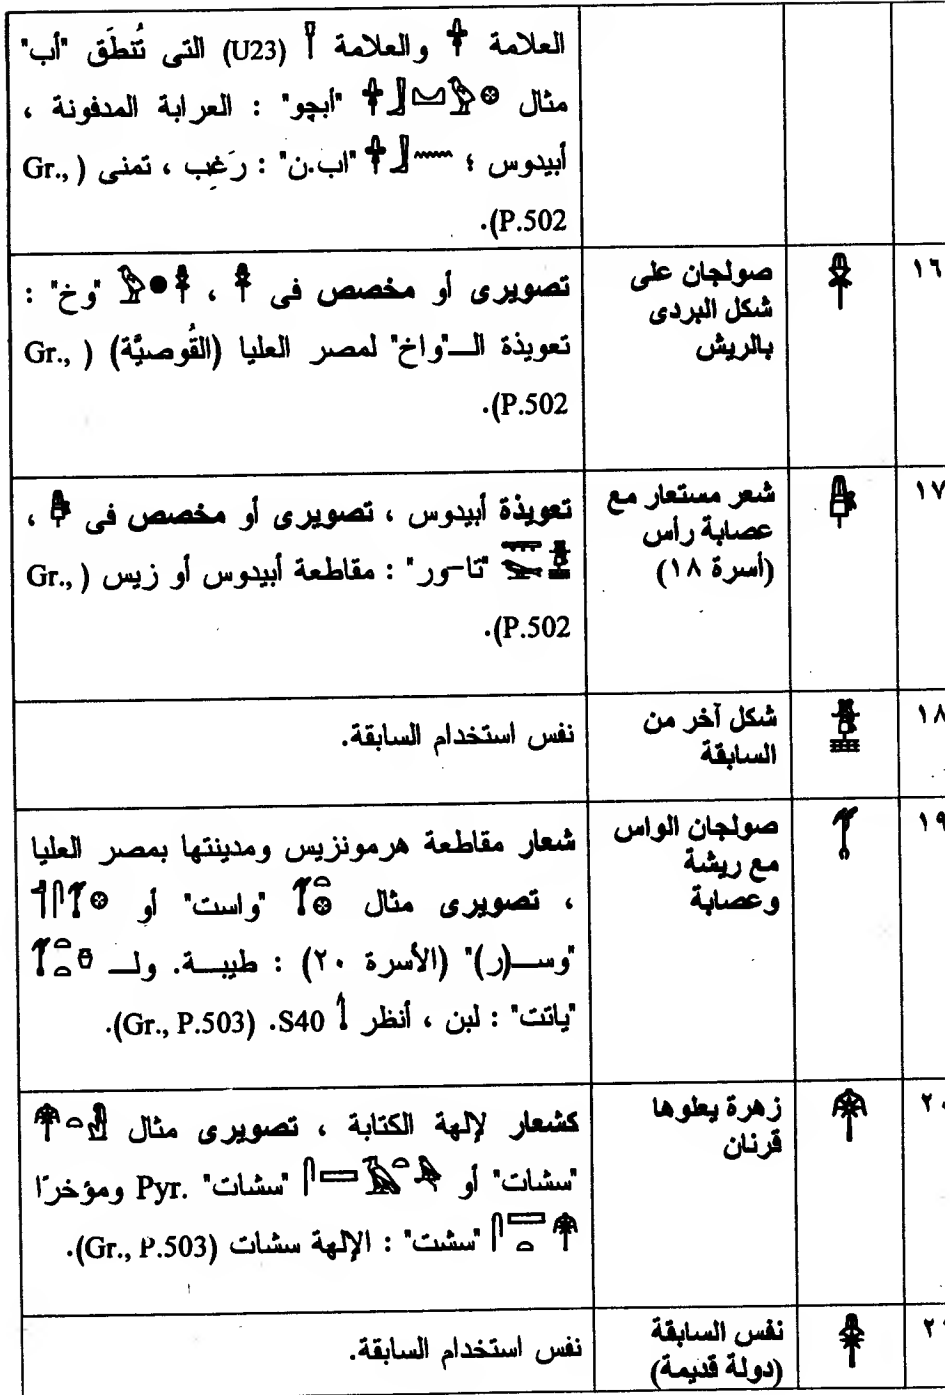 العلامة والعلامة (U23) التى تُنطَق "أب"
مثال "ابچو" : العرابة المدفونة ،
أبيدوس ؛ "اب.ن" : رَغِب ، تمنى (Gr.,
P.502).
١٦
صولجان على
شكل البردى
بالريش
تصويرى أو مخصص فى ، "وخ" :
تعويذة الـ"واخ" لمصر العليا (القُوصيَّة) (Gr.,
P.502).
١٧
شعر مستعار مع
عصابة رأس
(أسرة ١٨)
تعويذة أبيدوس ، تصويرى أو مخصص فى ،
"تا-ور" : مقاطعة أبيدوس أو زيس (Gr.,
P.502).
١٨
شكل آخر من
السابقة
نفس استخدام السابقة.
١٩
صولجان الواس
مع ريشة
وعصابة
شعار مقاطعة هرمونزيس ومدينتها بمصر العليا
، تصويرى مثال "واست" أو
"وسـ(ر)" (الأسرة ٢٠) : طيبة. ولـ
"ياتت" : لبن ، أنظر S40. (Gr., P.503).
٢٠
زهرة يعلوها
قرنان
كشعار لإلهة الكتابة ، تصويرى مثال
"سشات" أو "سشات" Pyr. ومؤخرًا
"سشت" : الإلهة سشات (Gr., P.503).
نفس السابقة
(دولة قديمة)
نفس استخدام السابقة.